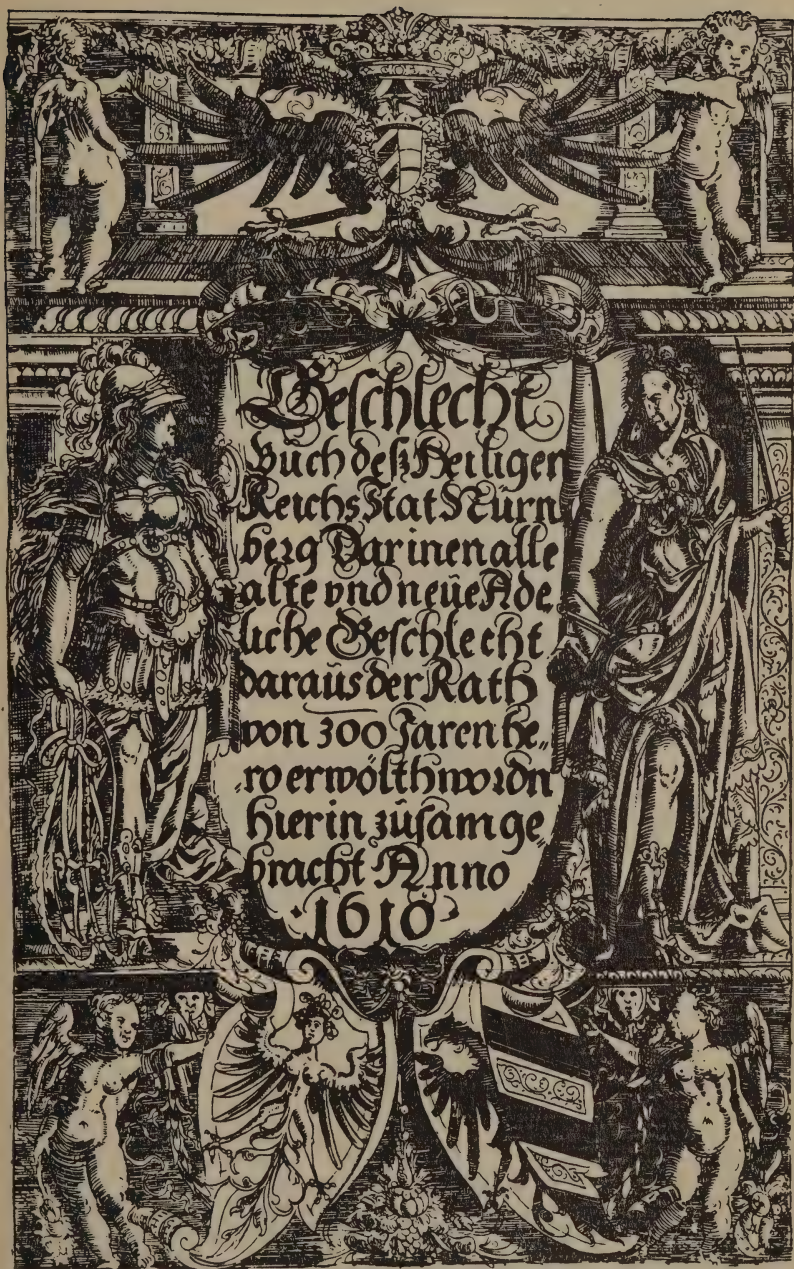 Geschlecht
Buch deß Heiligen
Reichs Stat Nürn
berg Dar inen alle
alte vnd neüe Ade
liche Geschlecht
daraüs der Rath
von 300 Jaren he„
„ro erwölth wordn
hierin züsam ge„
bracht Anno
·1610·